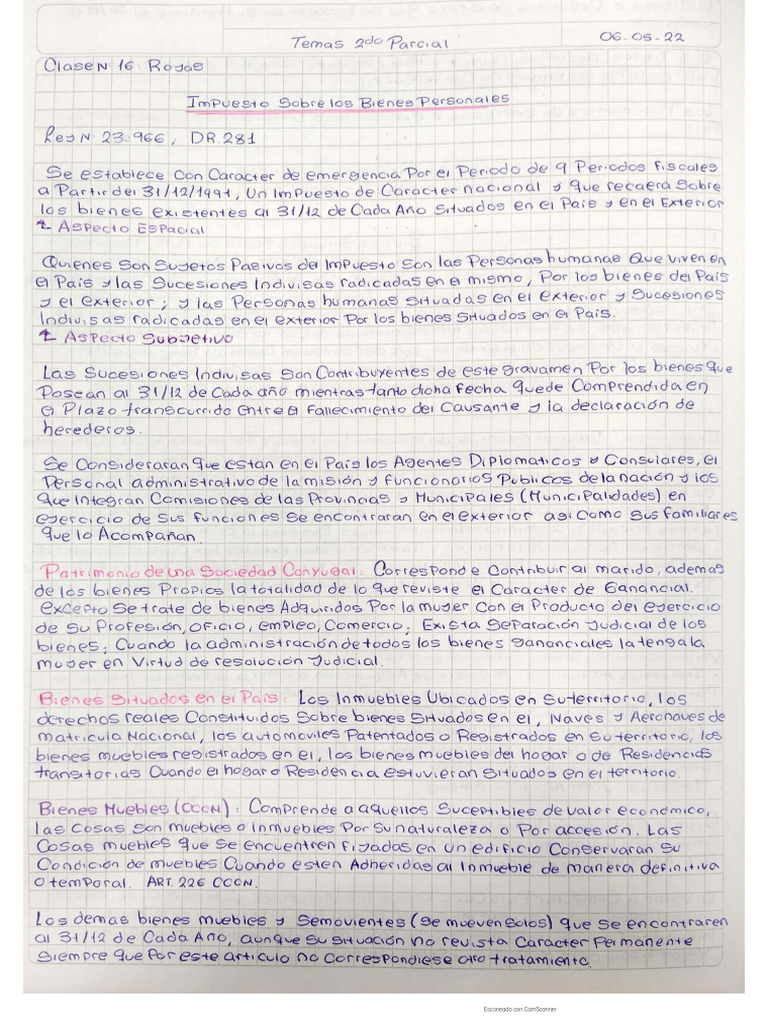 Temas 2do Parcial
06-05-22
Clase N 16 Rojas
Impuesto Sobre los Bienes Personales
Res N. 23.966, DR.281
Se establece con Caracter de emergencia Por el Periodo de 9 Periodos fiscales
a Partir del 31/12/1991, Un Impuesto de Caracter nacional y que recaera Sobre
los bienes existentes al 31/12 de Cada Año Situados en el País y en el Exterior
↳ Aspecto Espacial
Quienes Son Sujetos Pasivos del Impuesto Son las Personas humanas Que viven en
el País y las Sucesiones Indivisas radicadas en el mismo, Por los bienes del País
y el exterior; y las Personas humanas Situadas en el exterior y Sucesiones
Indivisas radicadas en el exterior Por los bienes Situados en el País.
↳ Aspecto Subjetivo
Las Sucesiones Indivisas Son Contribuyentes de este gravamen Por los bienes que
Posean al 31/12 de Cada año mientras tanto dicha fecha quede Comprendida en
el Plazo transcurrido entre el fallecimiento del Causante y la declaración de
herederos.
Se Consideraran Que estan en el País los Agentes Diplomaticos y Consulares, el
Personal administrativo de la misión y funcionarios Publicos de la nación y los
que Integran Comisiones de las Provincias y Municipales (Municipalidades) en
ejercicio de Sus funciones Se encontraran en el exterior asi Como Sus familiares
que lo Acompañan.
Patrimonio de una Sociedad Conyugal: Corresponde Contribuir al marido, ademas
de los bienes Propios la totalidad de lo que reviste el Caracter de Ganancial.
excepto Se trate de bienes Adquiridos Por la mujer Con el Producto del ejercicio
de Su Profesión, oficio, empleo, Comercio; Exista Separación Judicial de los
bienes; Cuando la administración de todos los bienes gananciales la tenga la
mujer en Virtud de resolución Judicial.
Bienes Situados en el País: Los Inmuebles Ubicados en Su territorio, los
derechos reales Constituidos Sobre bienes Situados en el, Naves y Aeronaves de
matricula Nacional, los automoviles Patentados o Registrados en Su territorio, los
bienes muebles registrados en el, los bienes muebles del hogar o de Residencias
transitorias Cuando el hogar o Residencia estuvieran Situados en el territorio.
Bienes Muebles (CCCN): Comprende a aquellos Suceptibles de valor económico,
las Cosas Son muebles o Inmuebles Por Su naturaleza o Por accesión. Las
Cosas muebles que Se encuentren fijadas en un edificio Conservaran Su
Condición de muebles Cuando esten Adheridas al Inmueble de manera definitiva
o temporal. Art. 226 CCCN.
Los demas bienes muebles y Semovientes (Se mueven Solos) que Se encontraren
al 31/12 de Cada Año, aunque Su Situación no revista Caracter Permanente
Siempre que Por este articulo no Correspondiese otro tratamiento.
Escaneado con CamScanner